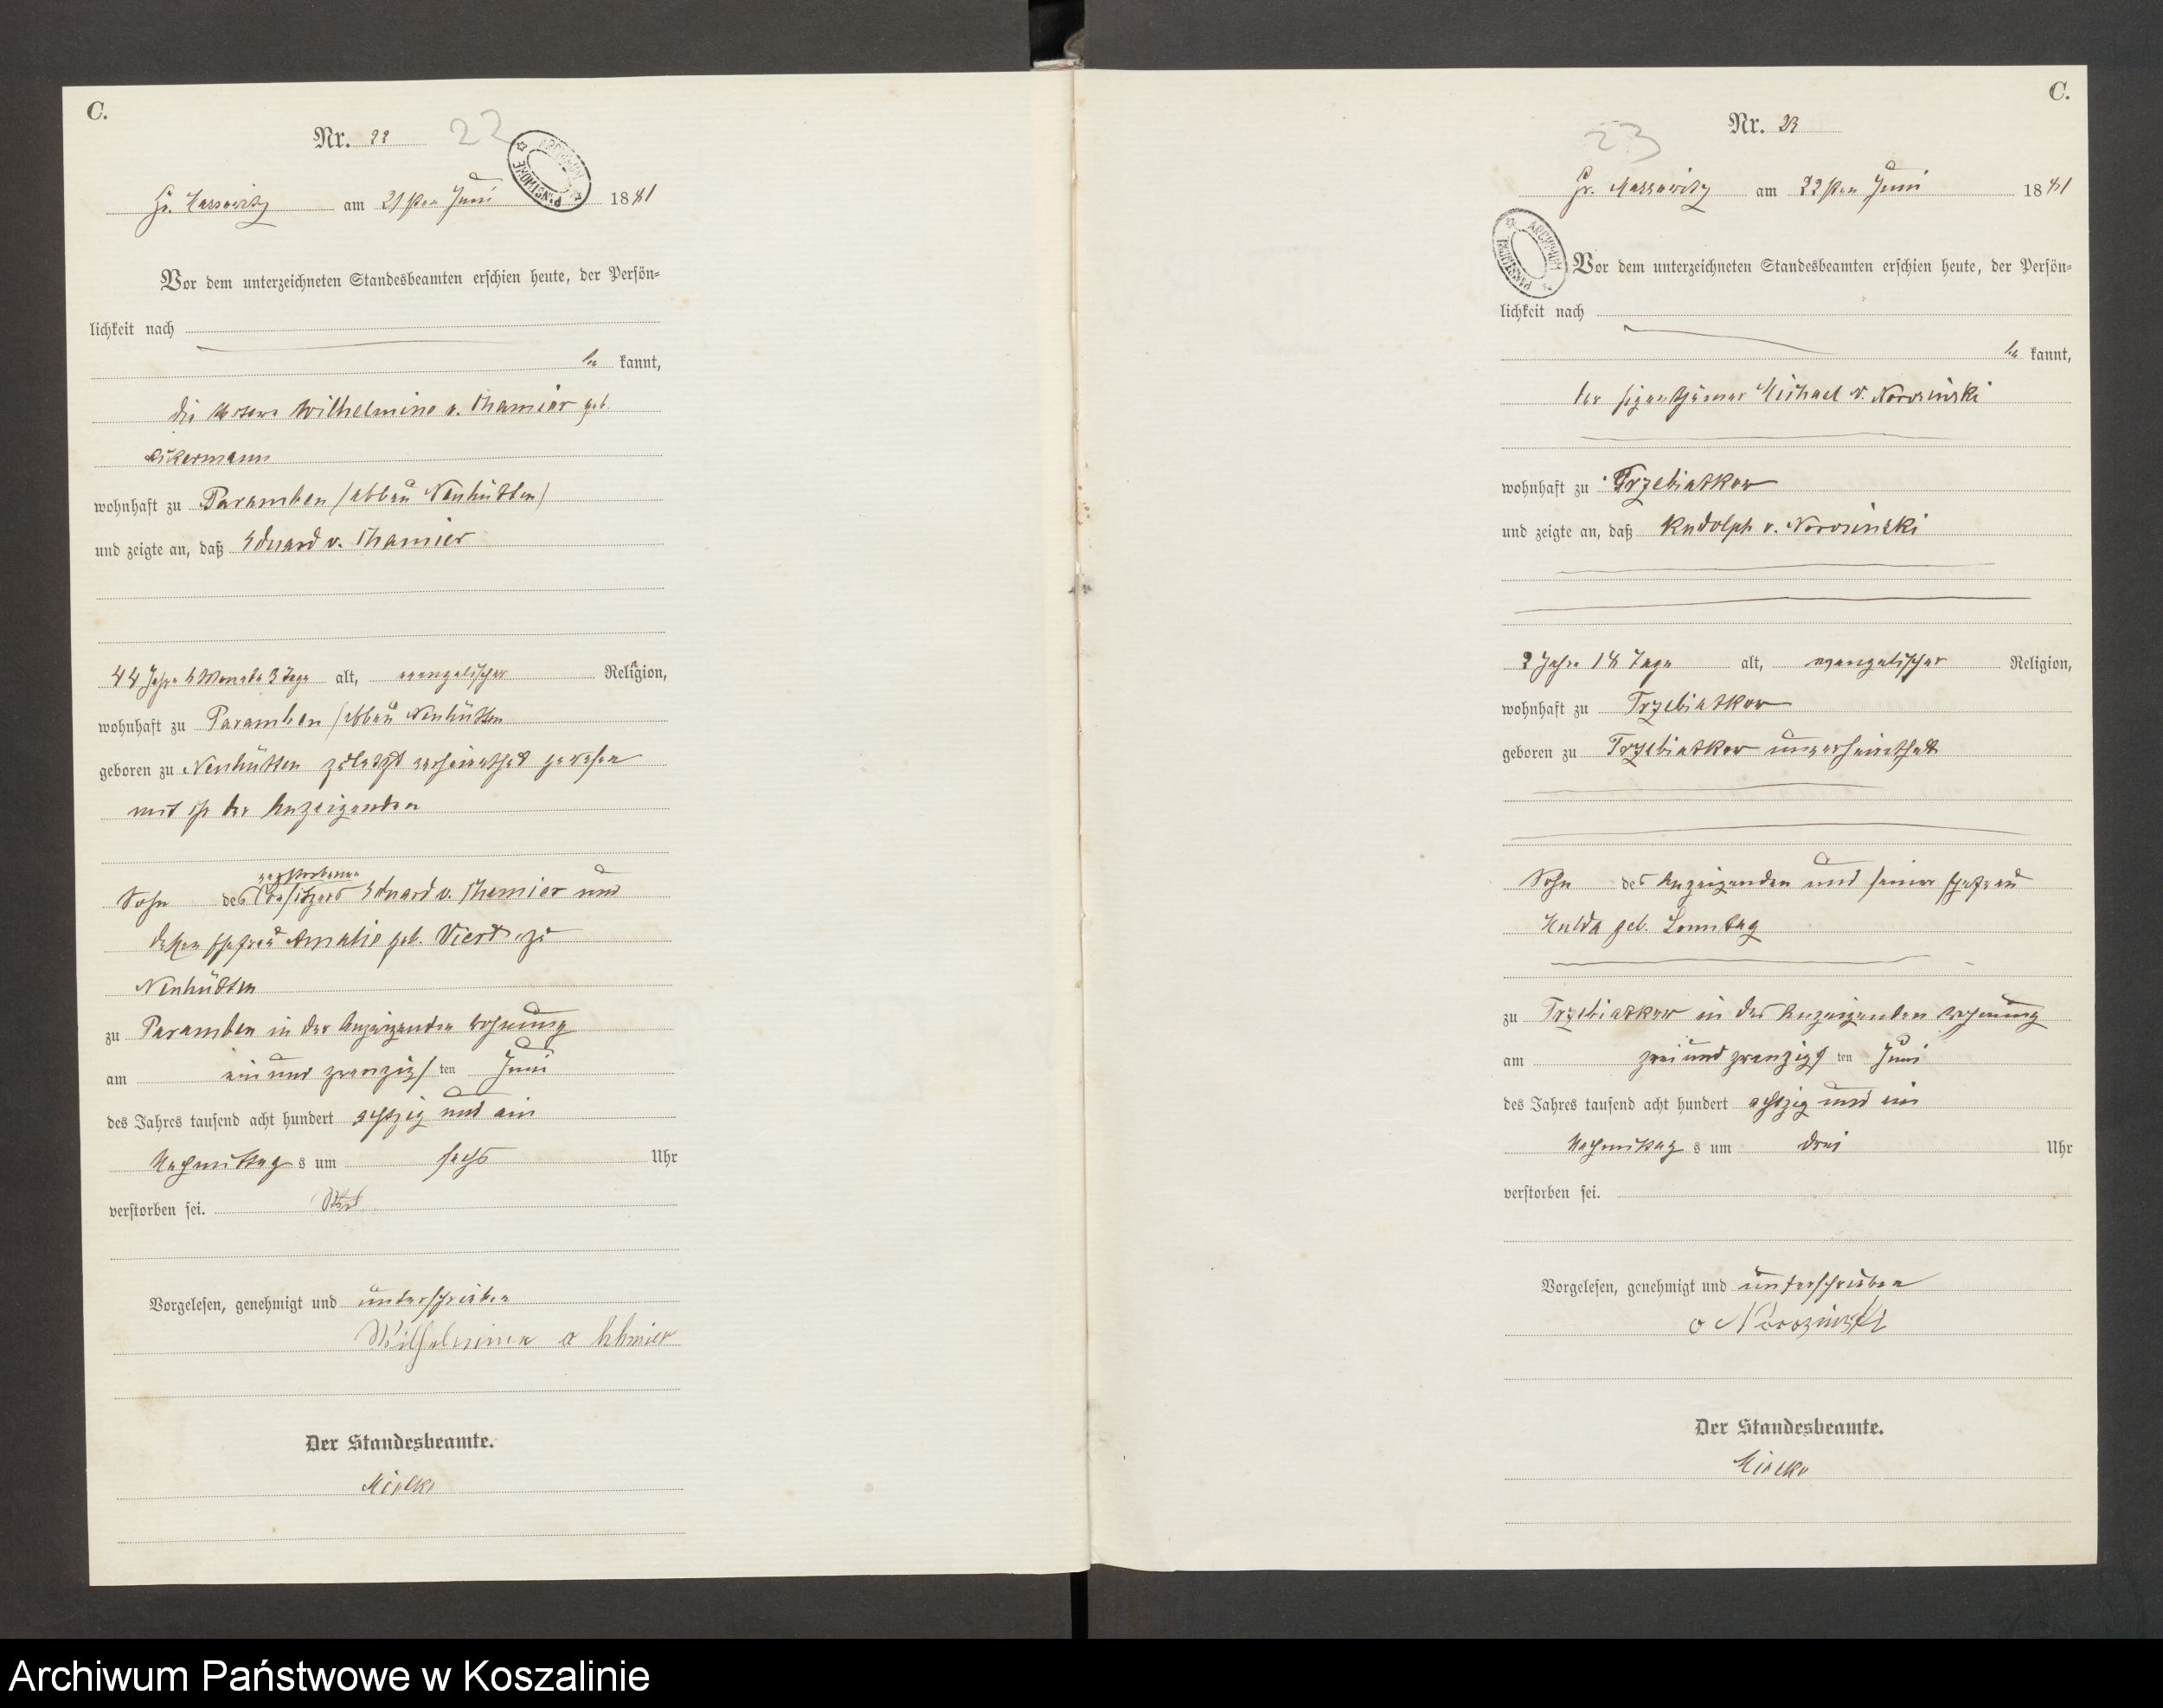 C.
Nr. 22 22
Gr. Massowitz am 21sten Juni 1881
Vor dem unterzeichneten Standesbeamten erschien heute, der Persön-
lichkeit nach
be kannt,
die Wilhelmine v. Chamier geb.
Ackermann
wohnhaft zu Paramben (abbau Neuhütten)
und zeigte an, daß Eduard v. Chamier
44 Jahre 4 Monate 3 Tage alt, evangelischer Religion,
wohnhaft zu Paramben (abbau Neuhütten
geboren zu Neuhütten zuletzt verheirathet gewesen
mit der Anzeigenden
verstorbenen
Sohn des Besitzers Eduard v. Chamier und
dessen Ehefrau Amalie geb. Vierd zu
Neuhütten
zu Paramben in der Anzeigenden Wohnung
am ein und zwanzigs ten Juni
des Jahres tausend acht hundert achtzig und ein
Nachmittag s um sechs Uhr
verstorben sei.
Vorgelesen, genehmigt und unterschrieben
Wilhelmine
Der Standesbeamte.
Mielke
C.
Nr. 23
23
Gr. Massowitz am 22sten Juni 1881
ARCHIWUM PAŃSTWOWE
Vor dem unterzeichneten Standesbeamten erschien heute, der Persön-
lichkeit nach
be kannt,
der Eigenthümer Michael v. Norosinski
wohnhaft zu Trzebiatkow
und zeigte an, daß Rudolph v. Norosinski
2 Jahre 18 Tage alt, evangelischer Religion,
wohnhaft zu Trzebiatkow
geboren zu Trzebiatkow unverheirathet
Sohn des Anzeigenden und seiner Ehefrau
Hulda geb. Sonntag
zu Trzebiatkow in des Anzeigenden Wohnung
am zwei und zwanzigs ten Juni
des Jahres tausend acht hundert achtzig und ein
Nachmittag s um drei Uhr
verstorben sei.
Vorgelesen, genehmigt und unterschrieben
Der Standesbeamte.
Mielke
Archiwum Państwowe w Koszalinie